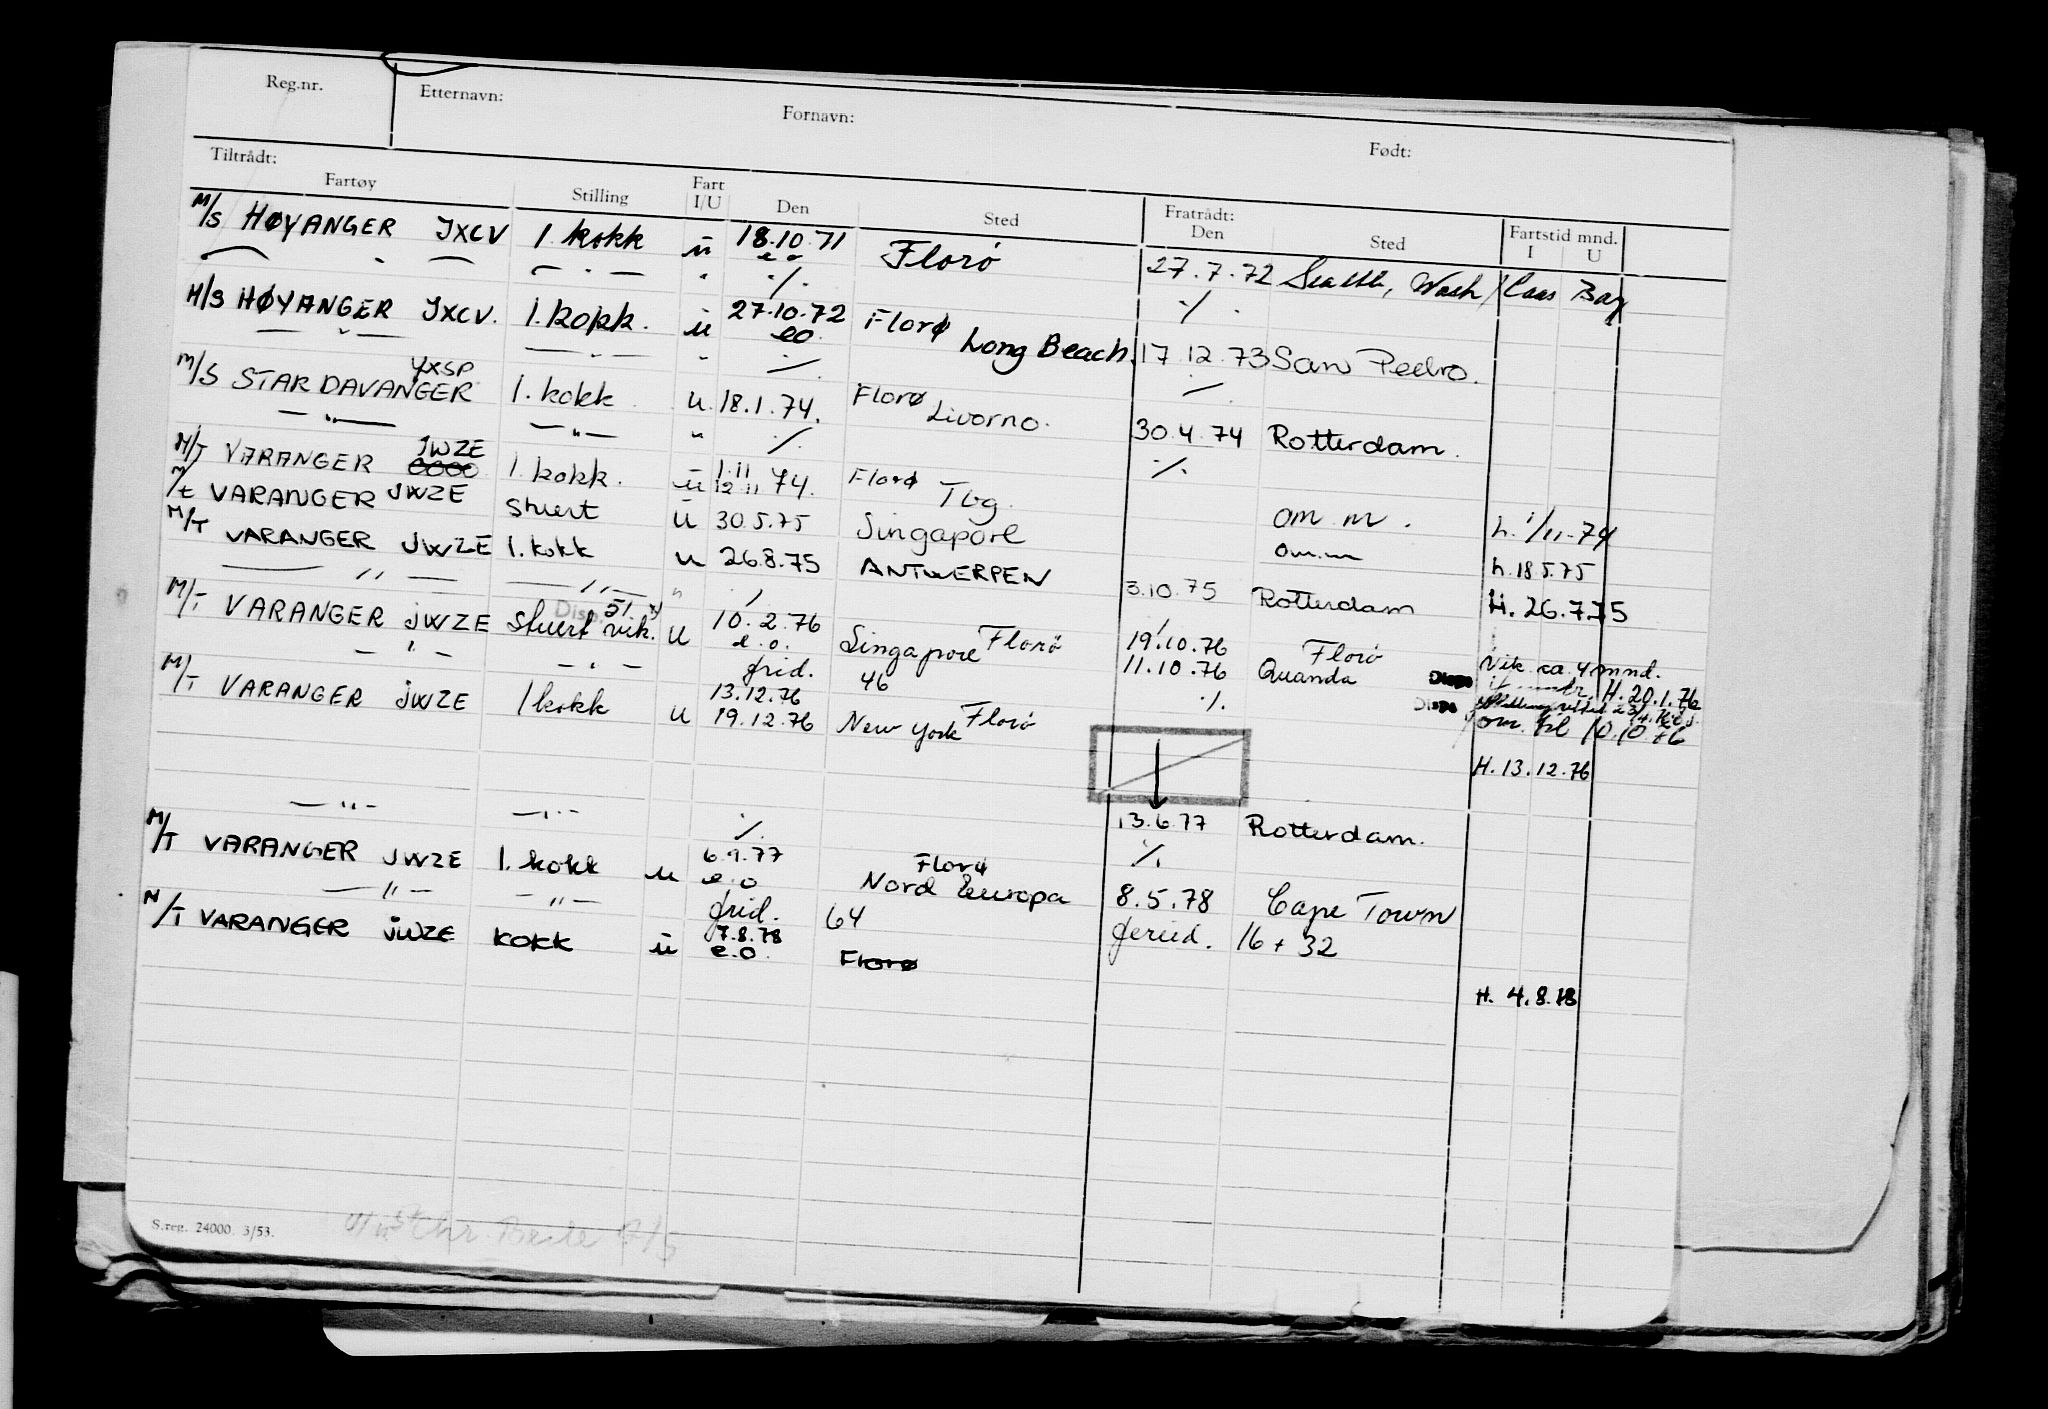 Reg.nr. Etternavn: Fornavn: Født:
Tiltrådt: Fratrådt: Fartstid mnd.
Fartøy Stilling Fart I/U Den Sted Den Sted I U
M/S HØYANGER JXCV 1. kokk u 18.10.71 Florø
" " " e o ./. 27.7.72 Seattle, Wash / Coos Bay
M/S HØYANGER JXCV. 1. kokk. u 27.10.72 Florø ./.
" " " eo ./. Long Beach. 17.12.73 San Pedro.
M/S STAR DAVANGER YXSP 1. kokk u. 18.1.74. Florø Livorno. ./.
" " " ./. 30.4.74 Rotterdam.
M/T VARANGER JWZE 1. kokk. u 1.11 12.11 74. Florø Tbg. ./.
M/t VARANGER JWZE stuert u 30.5.75 Singapore om m. h. 1/11-74
M/T VARANGER JWZE 1. kokk u 26.8.75 ANTWERPEN om.m h.18.5.75
" " " ./. 3.10.75 Rotterdam H. 26.7.75
M/T VARANGER JWZE stuert vik. U 10.2.76 e.o. Singapore Florø 19.10.76 Florø Vik ca. 4 mnd.
" " frid. 46 11.10.76 Quanda H. 20.1.76
M/T VARANGER JWZE 1 kokk U 13.12.76 19.12.76 New York Florø ./. om. frl 10.10.76
H. 13.12.76
" " ./. 13.6.77 Rotterdam.
M/T VARANGER JWZE 1. kokk u 6.9.77 e.o Florø Nord Europa ./.
" " frid. 64 8.5.78 Cape Town
M/T VARANGER JWZE kokk u 7.8.78 e.o. Florø ferieid. 16 + 32
H. 4.8.78
S.reg. 24000. 3/53.